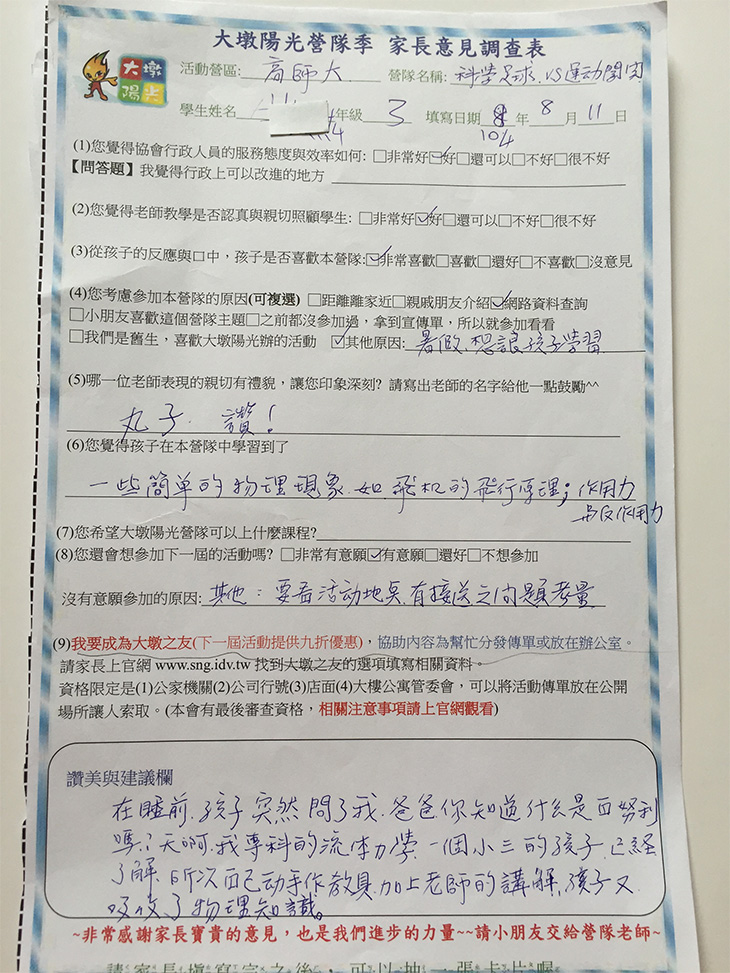 大墩陽光營隊季 家長意見調查表
大墩
陽光
活動營區: 高師大 營隊名稱: 科學足球 VS運動闖關
學生姓名 年級 3 填寫日期 104 年 8 月 11 日
(1)您覺得協會行政人員的服務態度與效率如何: □非常好☑好□還可以□不好□很不好
【問答題】我覺得行政上可以改進的地方
(2)您覺得老師教學是否認真與親切照顧學生: □非常好☑好□還可以□不好□很不好
(3)從孩子的反應與口中，孩子是否喜歡本營隊:☑非常喜歡□喜歡□還好□不喜歡□沒意見
(4)您考慮參加本營隊的原因(可複選) □距離離家近□親戚朋友介紹☑網路資料查詢
□小朋友喜歡這個營隊主題□之前都沒參加過，拿到宣傳單，所以就參加看看
□我們是舊生，喜歡大墩陽光辦的活動 ☑其他原因: 暑假.想讓孩子學習
(5)哪一位老師表現的親切有禮貌，讓您印象深刻? 請寫出老師的名字給他一點鼓勵^^
丸子. 讚!
(6)您覺得孩子在本營隊中學習到了
一些簡单的物理現象.如飛机的飛行原理;作用力
与反作用力
(7)您希望大墩陽光營隊可以上什麼課程?
(8)您還會想參加下一屆的活動嗎? □非常有意願☑有意願□還好□不想參加
沒有意願參加的原因: 其他：要看活动地点.有接送之问題考量
(9)我要成為大墩之友(下一屆活動提供九折優惠)，協助內容為幫忙分發傳單或放在辦公室。
請家長上官網 www.sng.idv.tw 找到大墩之友的選項填寫相關資料。
資格限定是(1)公家機關(2)公司行號(3)店面(4)大樓公寓管委會，可以將活動傳單放在公開
場所讓人索取。(本會有最後審查資格，相關注意事項請上官網觀看)
讚美與建議欄
在睡前.孩子突然問了我.爸爸你知道什么是白努利
嗎?天啊.我專科的流体力學.一個小三的孩子.已経
了解.所次自己动手作教具.加上老師的講解.孩子又
吸收了物理知識。
~非常感謝家長寶貴的意見，也是我們進步的力量~~請小朋友交給營隊老師~
請家長填寫完之後，可以抽一張卡片喔